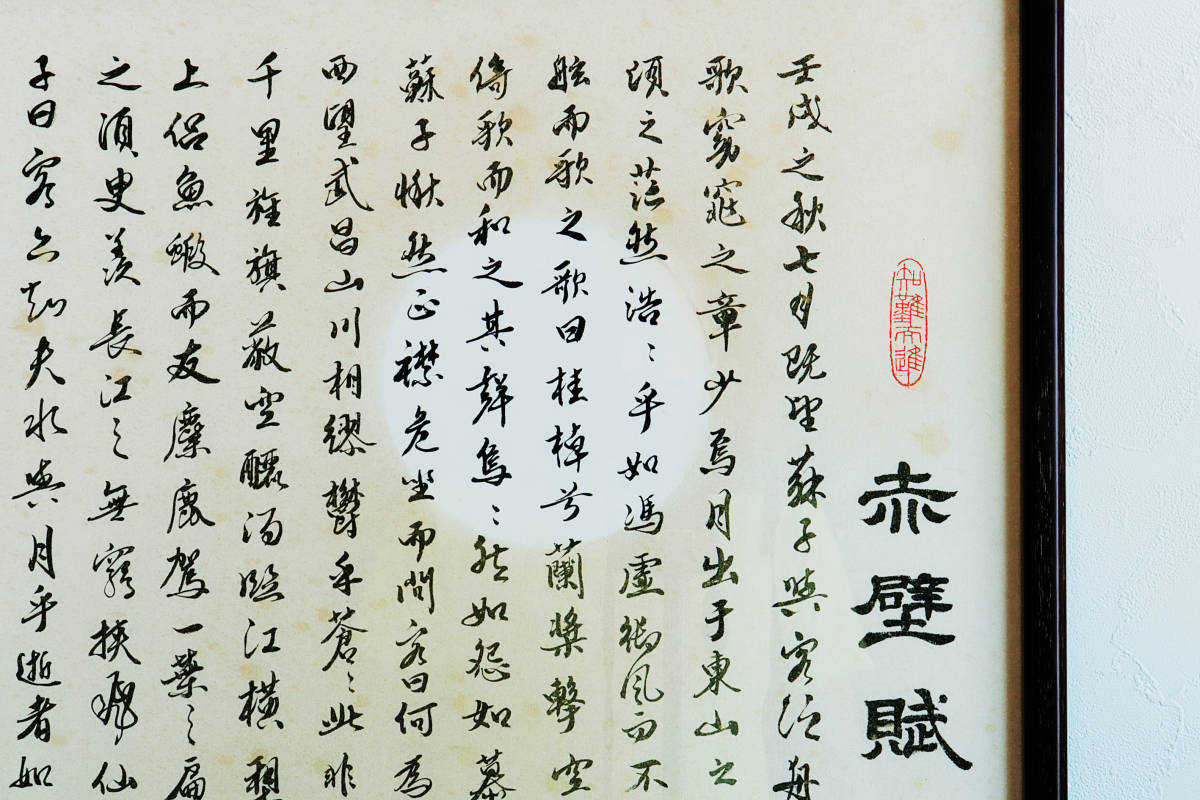 知難而進
赤壁賦
壬戌之秋七月既望蘇子與客泛舟
歌窈窕之章少焉月出于東山之
頃之茫然浩〻乎如馮虛御風而不
舷而歌之歌曰桂棹兮蘭槳擊空
倚歌而和之其聲嗚〻然如怨如慕
蘇子愀然正襟危坐而問客曰何為
西望武昌山川相繆鬱乎蒼〻此非
千里旌旗蔽空釃酒臨江橫槊
上侶魚蝦而友麋鹿駕一葉之扁
之須臾羨長江之無窮挾飛仙
子曰客亦知夫水與月乎逝者如